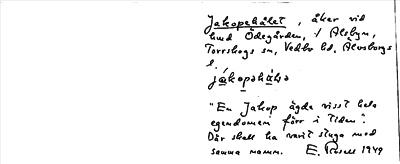 Jakopehålet, åker vid
hmd Ödegården, i Alsbyn,
Torrskogs sn, Vedbo hd, Älvsborgs
l.
jákopəhàlə
"En Jakop ägde visst hela
egendomen förr i tiden".
Där skall ha varit stuga med
samma namn. E. Rosell 1949